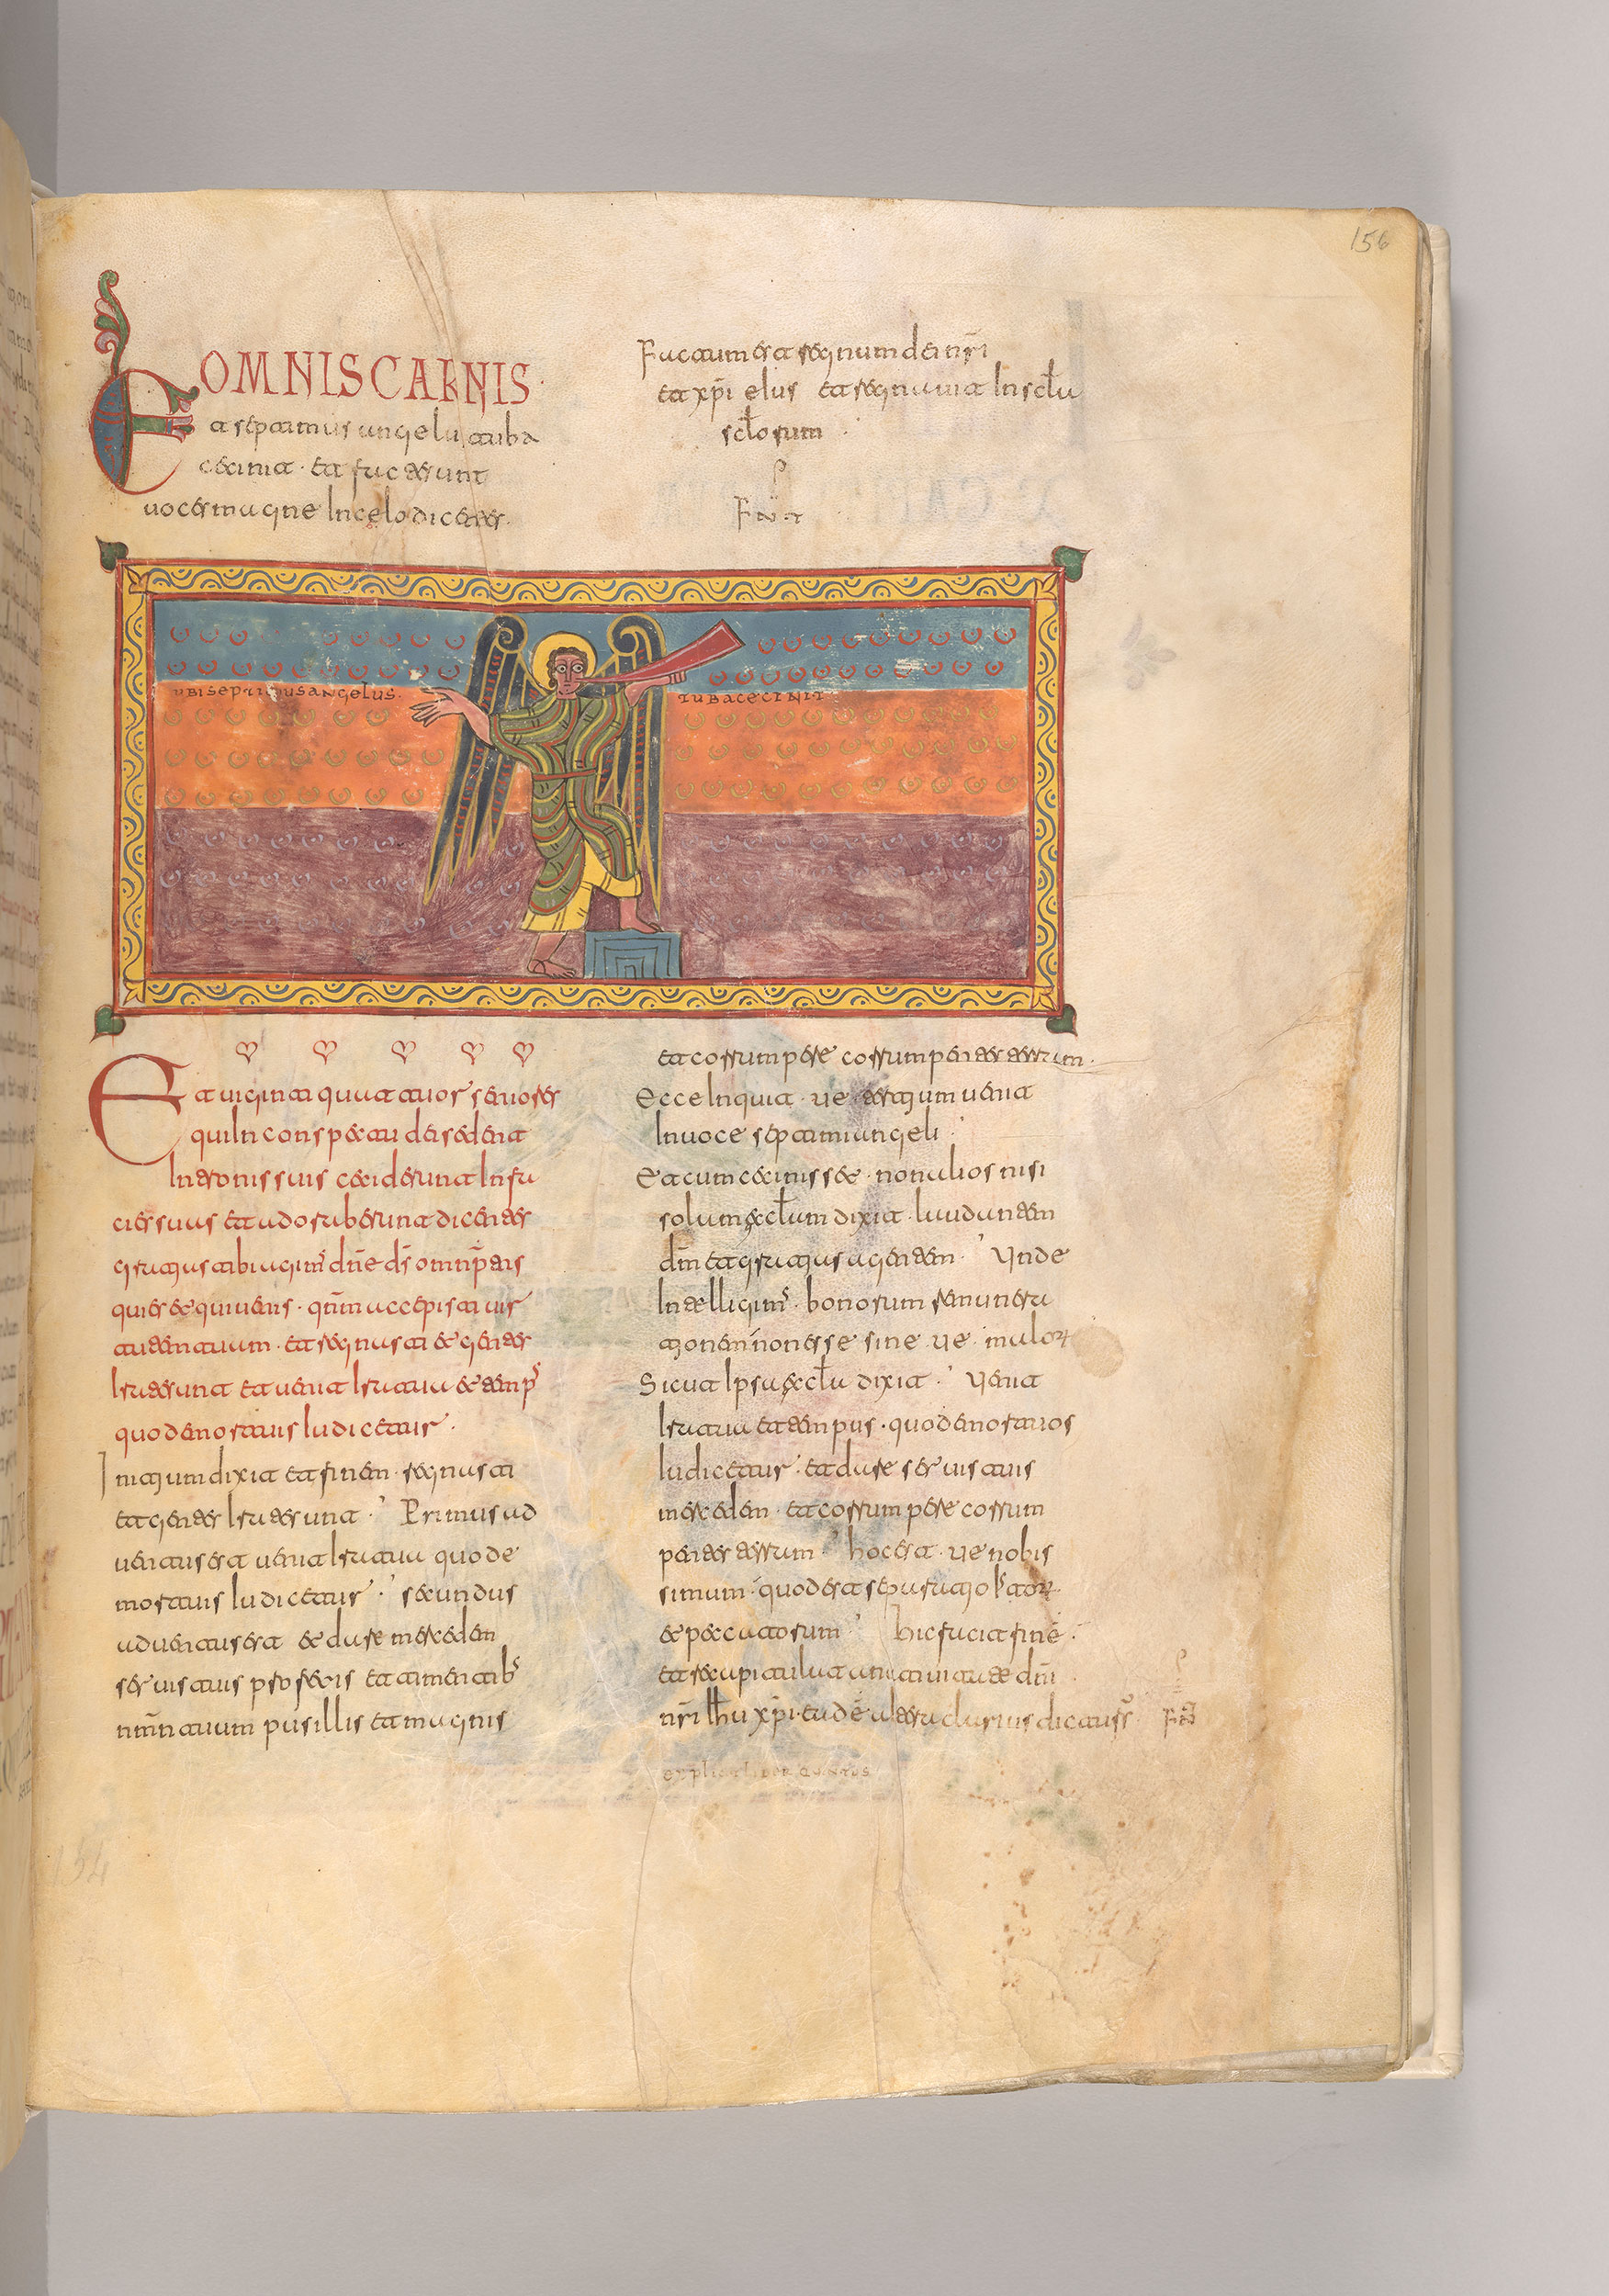 E OMNIS CARNIS ·
t septimus angelu tuba
cecinit · et facte sunt
voces magne in celo dicentes ·
Factum est regnum dei nr̄i
et xp̄i eius et regnavit in sclu
sclorum ·
156
UBI SEPTIMUS ANGELUS ·
TUBA CECINIT
Et viginti quattuor seniores
qui in conspectu dei sedent
in tronis suis ceciderunt in fa
cies suas et adoraberunt dicentes
gratias tibi agim̄s dn̄e ds̄ omnp̄ts
qui es et qui venis · qnm̄ accepisti vir
tutem tuam · et regnasti et gentes
irate sunt et venit ira tua et temps
quo de mortuis iudicetur ·
Initium dixit et finem · regnasti
et gentes irate sunt · Primus ad
ventus est venit ira tua quo de
mortuis iudicetur · secundus
adventus est et dare mercedem
servis tuis profetis et timentibs
nmn̄ tuum pusillis et magnis
et corrumpere corrumpentes terram ·
Ecce inquit · ve tertium venit
in voce septimi angeli
Et cum cecinisset · non alios nisi
solum eclum dixit · laudantem
dnm̄ et gratias agentem · Unde
intelligims · bonorum remunera
tionem non esse sine ve malor
Sicut ipsa ecla dixit · Venit
ira tua et tempus · quo de mortuos
iudicetur · et dare servis tuis
mercedem · et corrumpere corrum
pentes terram · hoc est ve nobis
simum · quod est separatio
et peccatorum · hic facit finē ·
et recapitulat a nativitate dn̄i
nr̄i ihu xp̄i · clarius dicturs
explicit liber quintus
154